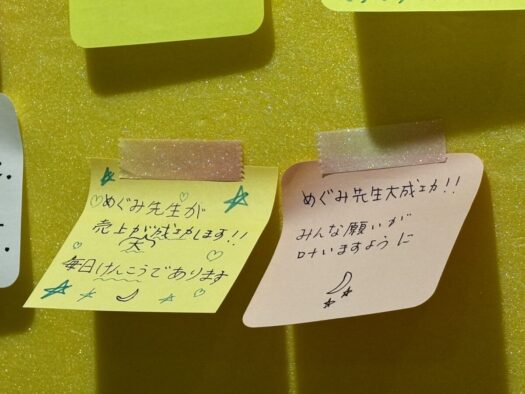 めぐみ先生が
売上が成功します!!
(大)
毎日けんこうであります
めぐみ先生大成功!!
みんな願いが
叶いますように